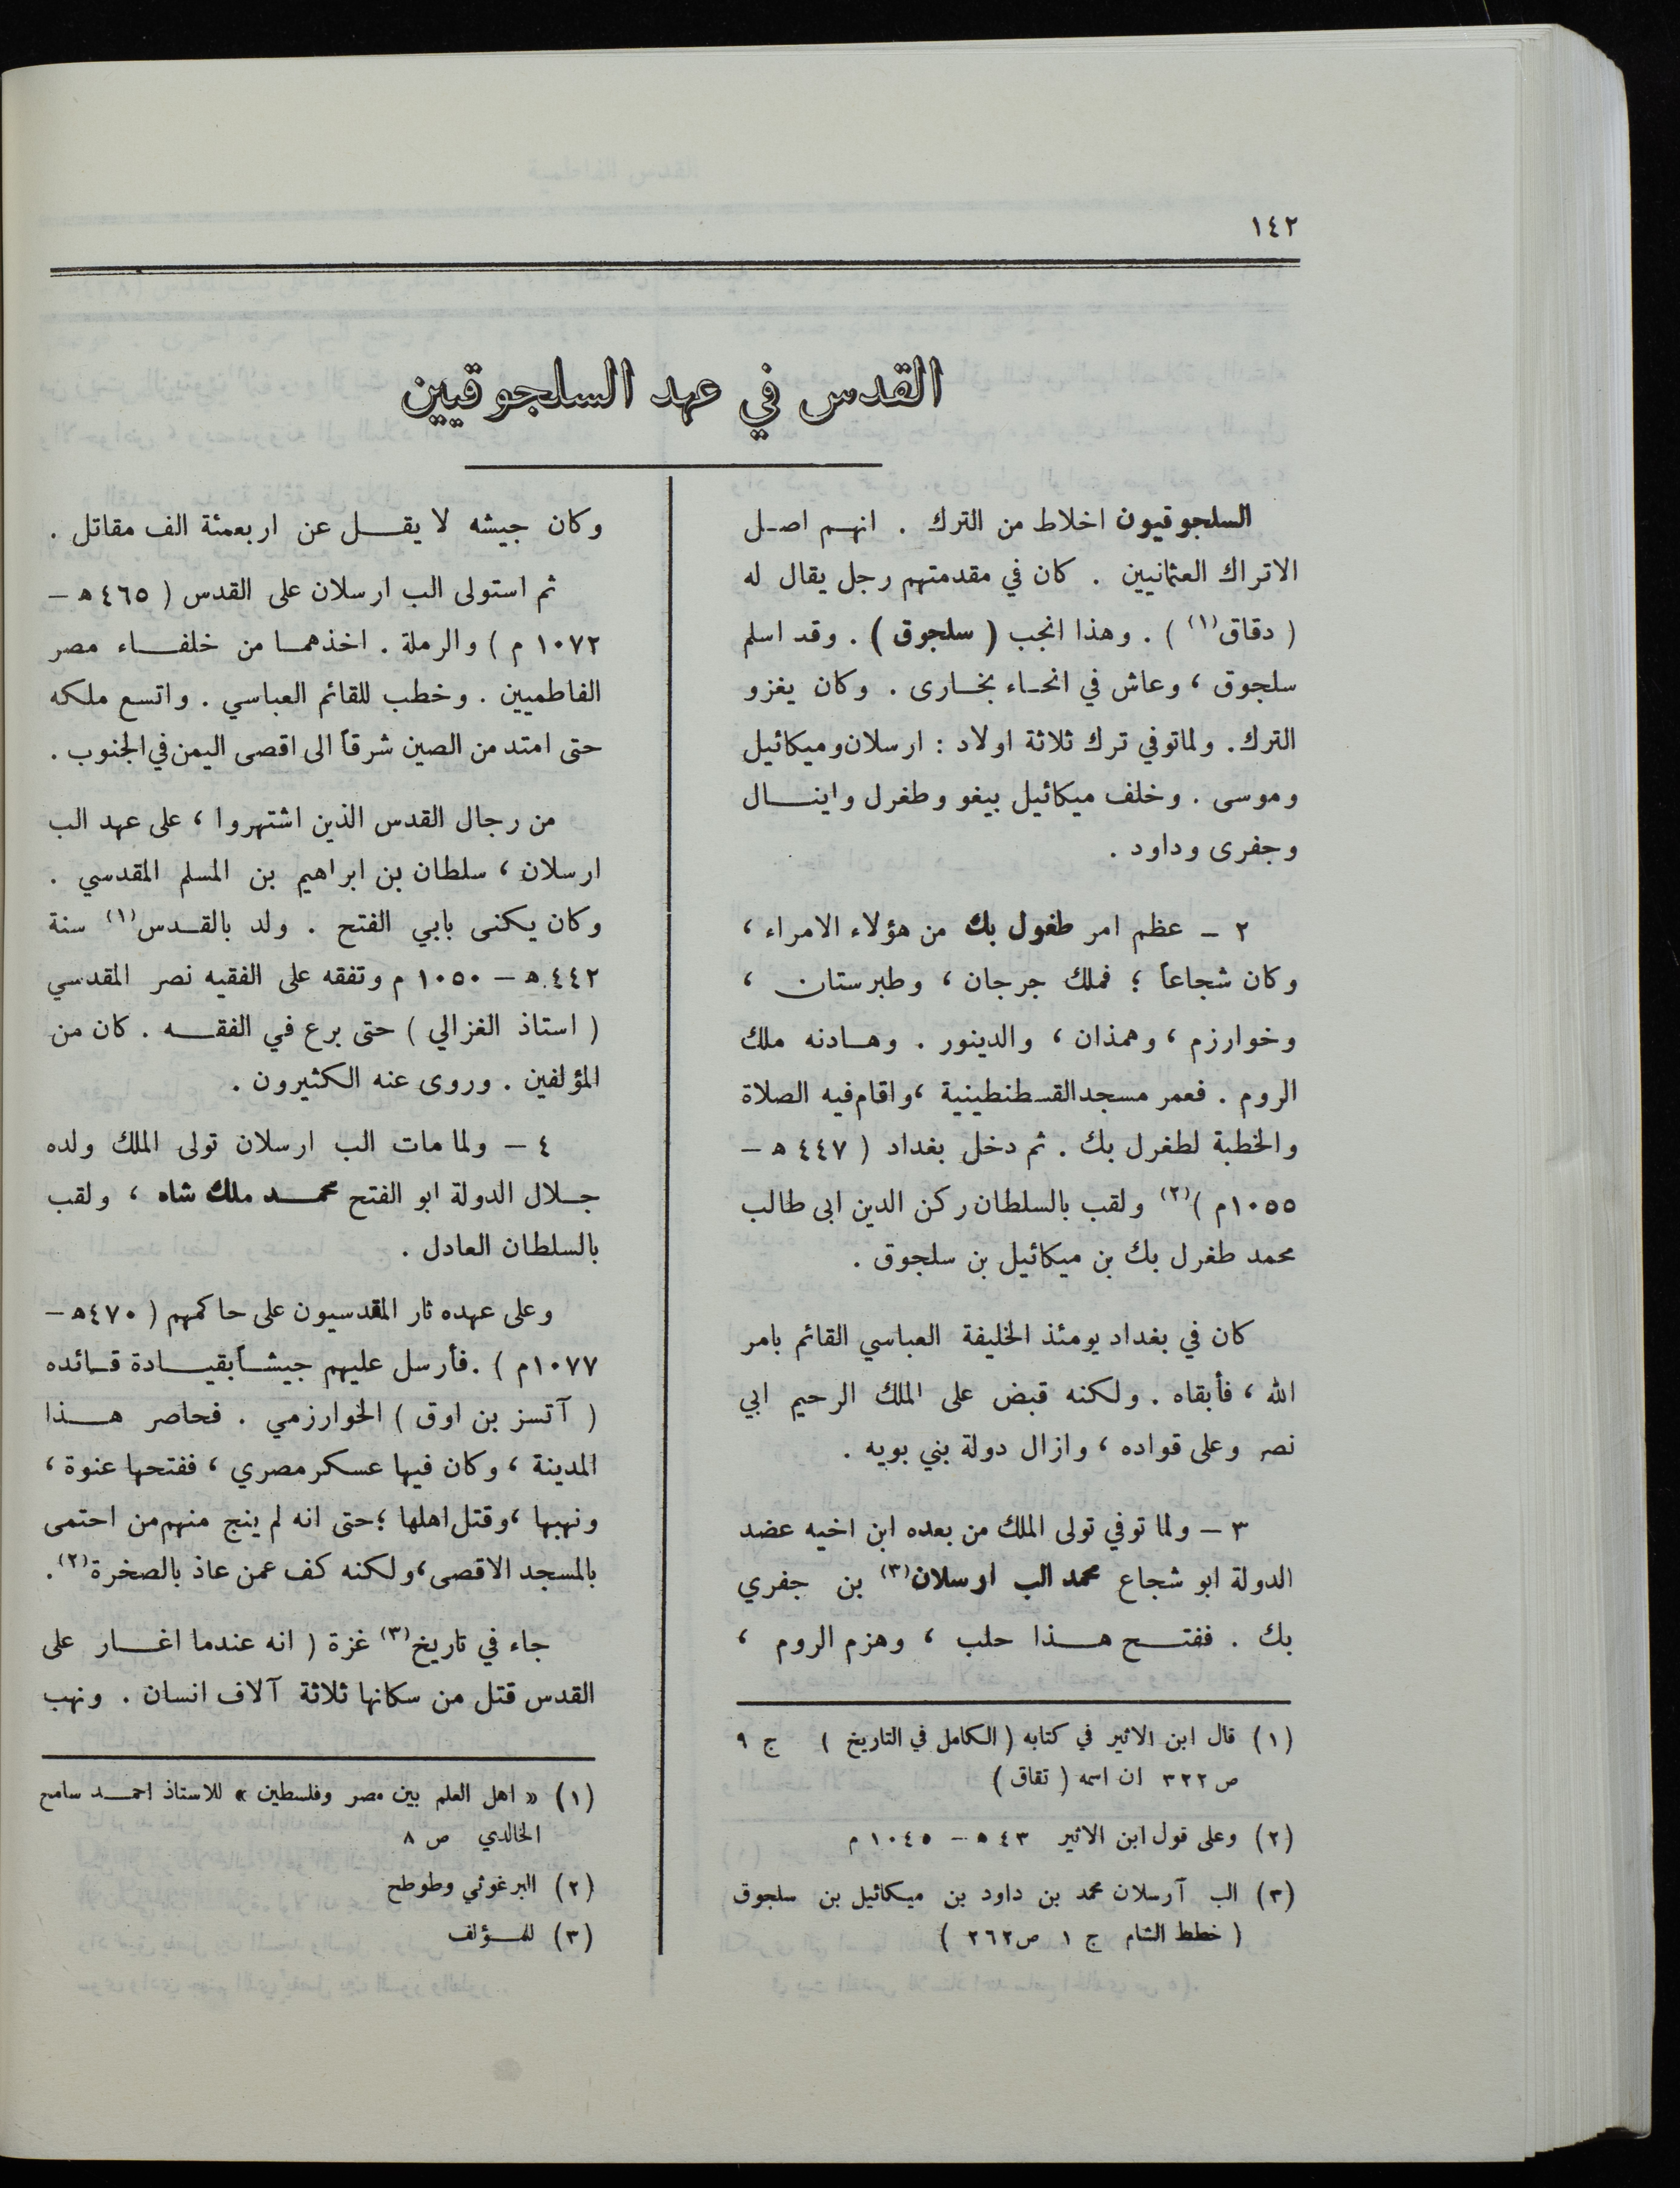 ١٤٢
القدس في عهد السلجوقيين
السلجوقيون اخلاط من الترك . انهم اصل
الاتراك العثمانيين . كان في مقدمتهم رجل يقال له
( دقاق(١) ) . وهذا انجب ( سلجوق ) . وقد اسلم
سلجوق ، وعاش في انحاء بخارى . وكان يغزو
الترك . ولما توفي ترك ثلاثة اولاد : ارسلان وميكائيل
وموسى . وخلف ميكائيل بيغو وطغرل واينال
وجفرى وداود .
٢ – عظم امر طغول بك من هؤلاء الامراء ،
وكان شجاعاً ؛ فملك جرجان ، وطبرستان ،
وخوارزم ، وهمذان ، والدينور . وهادنه ملك
الروم . فعمر مسجد القسطنطينية ، واقام فيه الصلاة
والخطبة لطغرل بك . ثم دخل بغداد ( ٤٤٧ ه –
١٠٥٥م )(٢) ولقب بالسلطان ركن الدين ابى طالب
محمد طغرل بك بن ميكائيل بن سلجوق .
كان في بغداد يومئذ الخليفة العباسي القائم بامر
الله ، فأبقاه . ولكنه قبض على الملك الرحيم ابي
نصر وعلى قواده ، وازال دولة بني بويه .
٣ – ولما توفي تولى الملك من بعده ابن اخيه عضد
الدولة ابو شجاع محمد الب ارسلان(٣) بن جفري
بك . ففتح هذا حلب ، وهزم الروم ،
(١) قال ابن الاثير في كتابه ( الكامل في التاريخ ) ج ٩
ص ٣٢٢ ان اسمه ( تقاق )
(٢) وعلى قول ابن الاثير ٤٣ ه – ١٠٤٥ م
(٣) الب آرسلان محمد بن داود بن ميكائيل بن سلجوق
( خطط الشام ج ١ ص ٢٦٢ )
وكان جيشه لا يقل عن اربعمئة الف مقاتل .
ثم استولى الب ارسلان على القدس ( ٤٦٥ ه –
١٠٧٢ م ) والرملة . اخذهما من خلفاء مصر
الفاطميين . وخطب للقائم العباسي . واتسع ملكه
حتى امتد من الصين شرقاً الى اقصى اليمن في الجنوب .
من رجال القدس الذين اشتهروا ، على عهد الب
ارسلان ، سلطان بن ابراهيم بن المسلم المقدسي .
وكان يكنى بابي الفتح . ولد بالقدس(١) سنة
٤٤٢ ه – ١٠٥٠ م وتفقه على الفقيه نصر المقدسي
( استاذ الغزالي ) حتى برع في الفقه . كان من
المؤلفين . وروى عنه الكثيرون .
٤ – ولما مات الب ارسلان تولى الملك ولده
جلال الدولة ابو الفتح محمد ملك شاه ، ولقب
بالسلطان العادل .
وعلى عهده ثار المقدسيون على حاكمهم ( ٤٧٠ه –
١٠٧٧م ) . فأرسل عليهم جيشاً بقيادة قائده
( آتسز بن اوق ) الخوارزمي . فحاصر هذا
المدينة ، وكان فيها عسكر مصري ، ففتحها عنوة ،
ونهبها ، وقتل اهلها ؛ حتى انه لم ينج منهم من احتمى
بالمسجد الاقصى ، ولكنه كف عمن عاذ بالصخرة(٢) .
جاء في تاريخ(٣) غزة ( انه عندما اغار على
القدس قتل من سكانها ثلاثة آلاف انسان . ونهب
(١) « اهل العلم بين مصر وفلسطين » للاستاذ احمد سامح
الخالدي ص ٨
(٢) البرغوثي وطوطح
(٣) للمؤلف